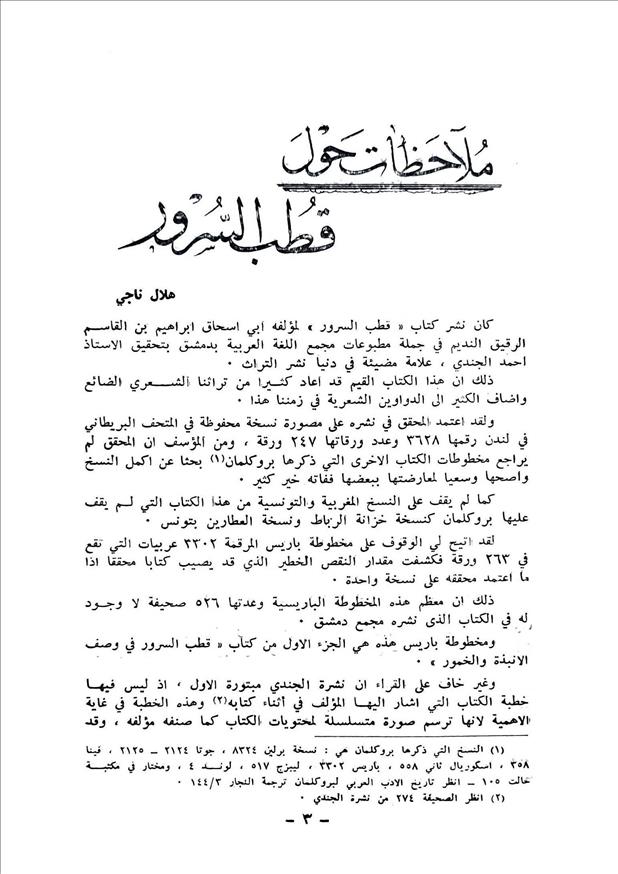 ملاحظات حول
قطب السرور
هلال ناجي
كان نشر كتاب « قطب السرور » لمؤلفه أبي اسحاق ابراهيم بن القاسم
الرقيق النديم في جملة مطبوعات مجمع اللغة العربية بدمشق بتحقيق الاستاذ
احمد الجندي ، علامة مضيئة في دنيا نشر التراث ٠
ذلك ان هذا الكتاب القيم قد اعاد كثيرا من تراثنا الشعري الضائع
واضاف الكثير الى الدواوين الشعرية في زمننا هذا ٠
ولقد اعتمد المحقق في نشره على مصورة نسخة محفوظة في المتحف البريطاني
في لندن رقمها ٣٦٢٨ وعدد ورقاتها ٢٤٧ ورقة ، ومن المؤسف ان المحقق لم
يراجع مخطوطات الكتاب الاخرى التي ذكرها بروكلمان(١) بحثا عن اكمل النسخ
واصحها وسعيا لمعارضتها ببعضها ففاته خير كثير ٠
كما لم يقف على النسخ المغربية والتونسية من هذا الكتاب التي لم يقف
عليها بروكلمان كنسخة خزانة الرباط ونسخة العطارين بتونس ٠
لقد اتيح لي الوقوف على مخطوطة باريس المرقمة ٣٣٠٢ عربيات التي تقع
في ٢٦٣ ورقة فكشفت مقدار النقص الخطير الذي قد يصيب كتابا محققا اذا
ما اعتمد محققه على نسخة واحدة ٠
ذلك ان معظم هذه المخطوطة الباريسية وعدتها ٥٢٦ صحيفة لا وجود
له في الكتاب الذى نشره مجمع دمشق ٠
ومخطوطة باريس هذه هي الجزء الاول من كتاب « قطب السرور في وصف
الانبذة والخمور » ٠
وغير خاف على القراء ان نشرة الجندي مبتورة الاول ، اذ ليس فيها
خطبة الكتاب التي اشار اليها المؤلف في أثناء كتابه(٢) وهذه الخطبة في غاية
الاهمية لانها ترسم صورة متسلسلة لمحتويات الكتاب كما صنفه مؤلفه ، وقد
(١) النسخ التي ذكرها بروكلمان هي : نسخة برلين ٨٣٢٤ ، جوتا ٢١٢٤ – ٢١٢٥ ، فينا
٣٥٨ ، اسكوريال ثاني ٥٥٨ ، باريس ٣٣٠٢ ، ليبزج ٥١٧ ، لوند ٤ ، ومختار في مكتبة
خالت ١٠٥ – انظر تاريخ الادب العربي لبروكلمان ترجمة النجار ١٤٤/٣ ٠
(٢) انظر الصحيفة ٢٧٤ من نشرة الجندي ٠
– ٣ –